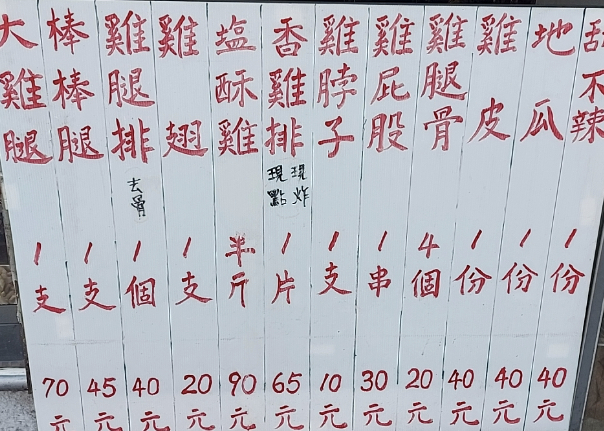 大雞腿 1支 70元
棒棒腿 1支 45元
雞腿排 去骨 1個 40元
雞翅 1支 20元
塩酥雞 半斤 90元
香雞排 現點現炸 1片 65元
雞脖子 1支 10元
雞屁股 1串 30元
雞腿骨 4個 20元
雞皮 1份 40元
地瓜 1份 40元
甜不辣 1份 40元